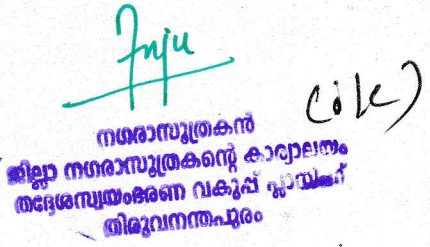 Anju
നഗരാസൂത്രകൻ
ജില്ലാ നഗരാസൂത്രകന്റെ കാര്യാലയം
തദ്ദേശസ്വയംഭരണ വകുപ്പ് പ്ലാനിംഗ്
തിരുവനന്തപുരം